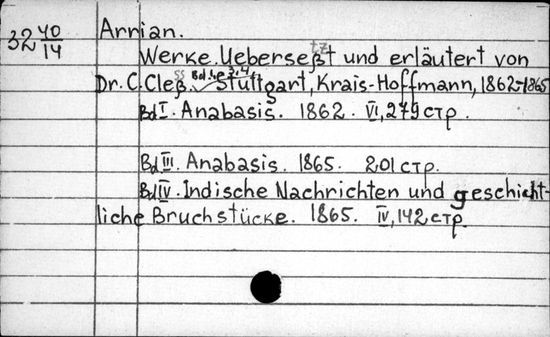 32 40/14
Arrian.
Werke. Ueberseßt und erläutert von
tz
Dr. C. Cleß. Stuttgart, Krais-Hoffmann, 1862-1865
ss
Bd I. Anabasis. 1862. VI, 279 стр.
Bd III. Anabasis. 1865. 201 стр.
Bd IV. Indische Nachrichten und geschicht-
liche Bruchstücke. 1865. IV, 142 стр.